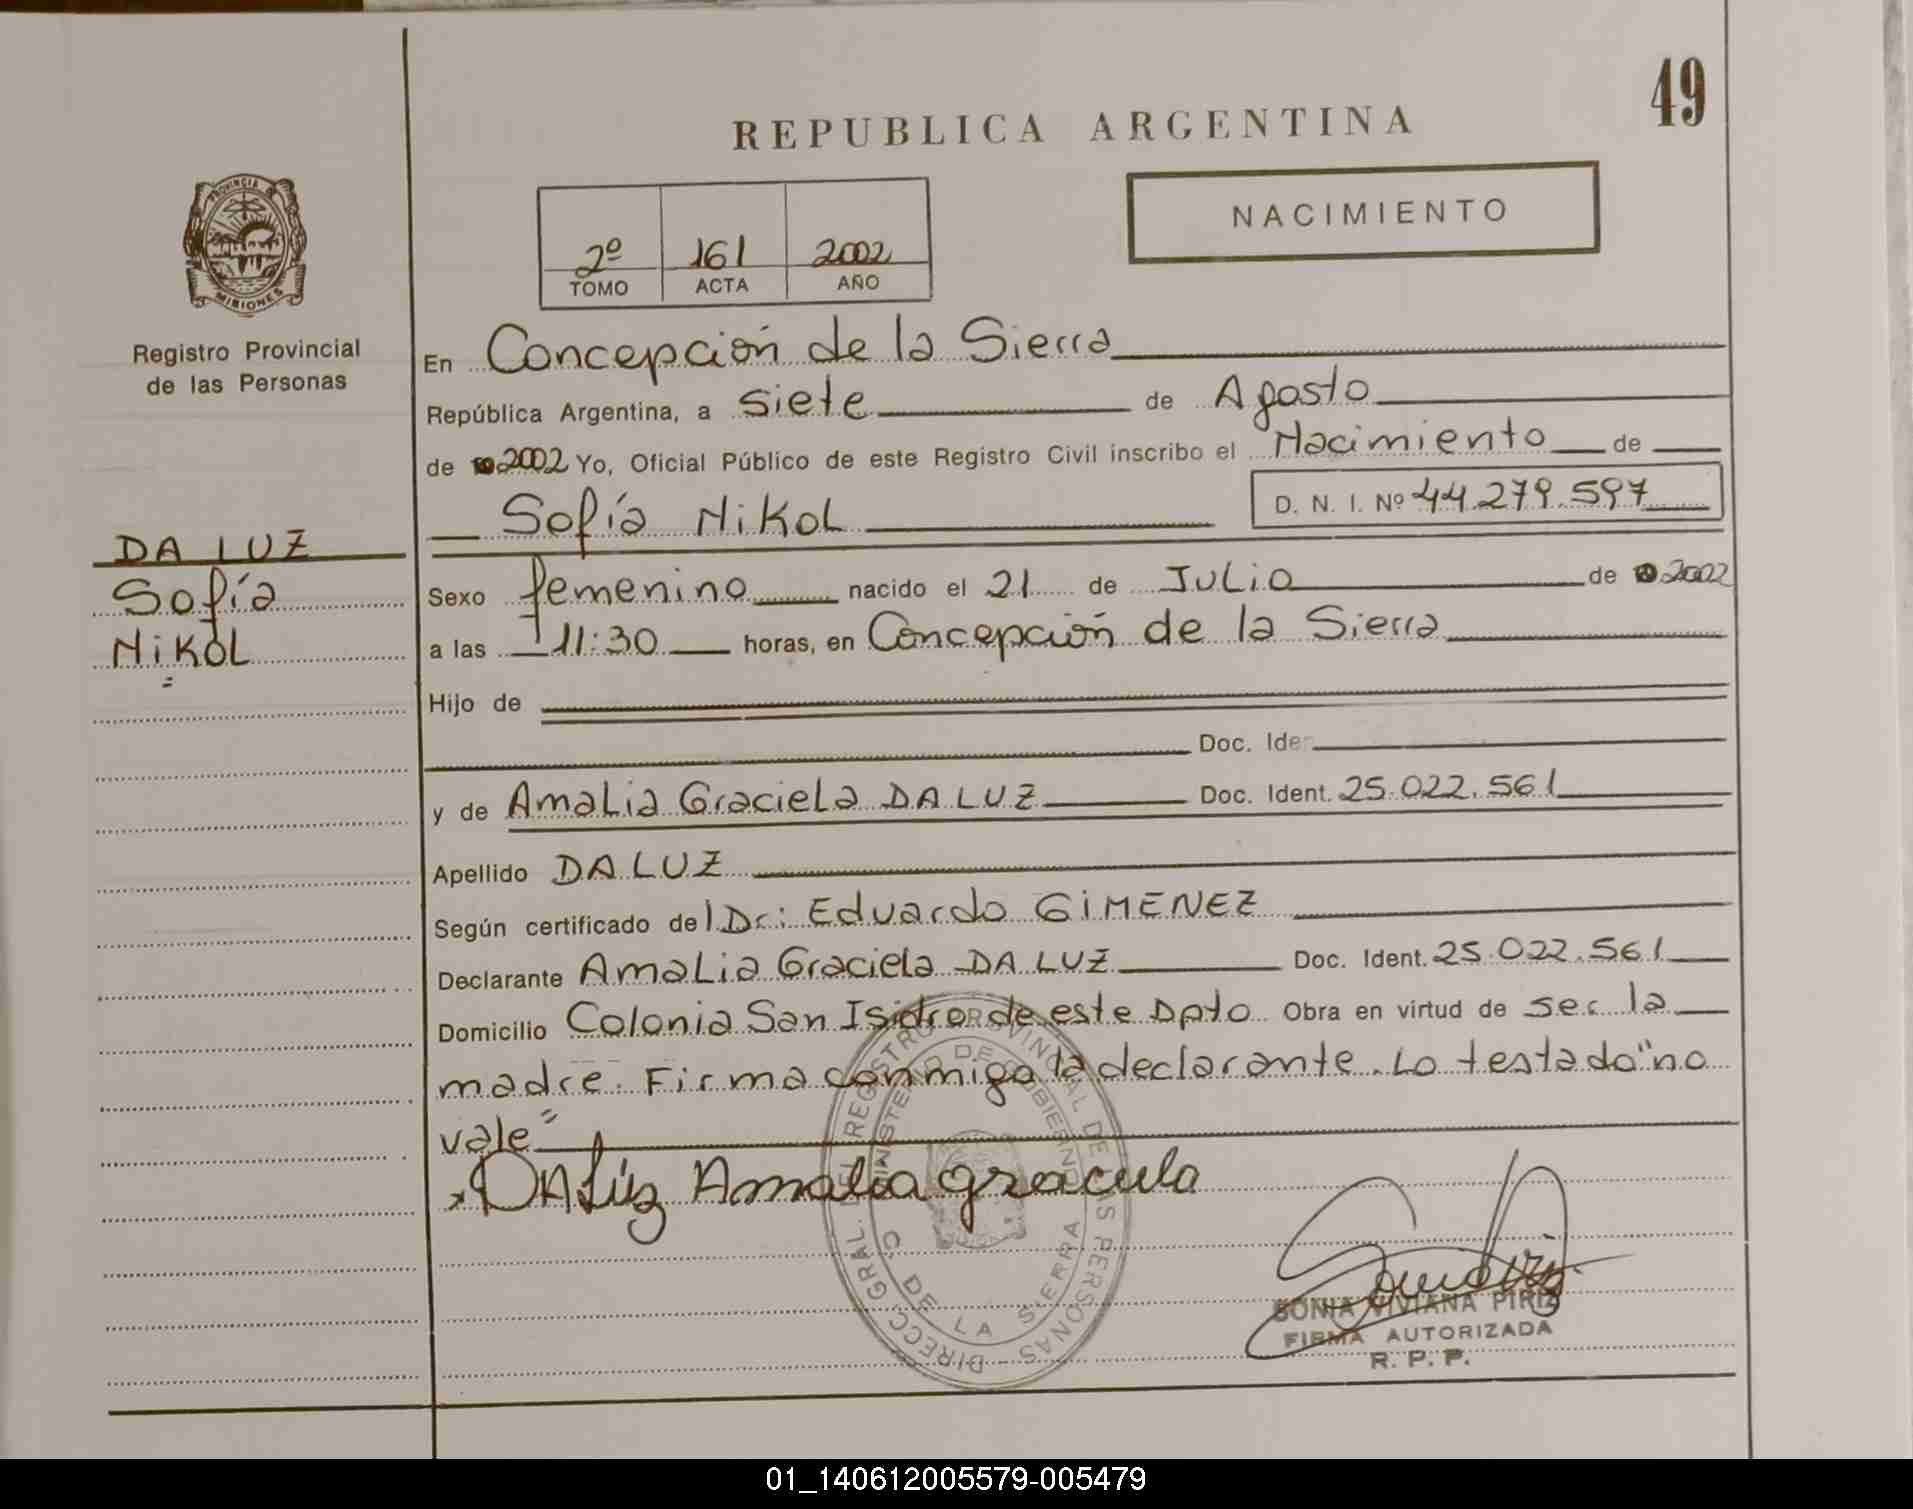 49
REPUBLICA ARGENTINA
NACIMIENTO
2º 161 2002
TOMO ACTA AÑO
PROVINCIA
MISIONES
Registro Provincial
de las Personas
DA LUZ
Sofía
Nikol
En Concepción de la Sierra
República Argentina, a siete de Agosto
de 2002 Yo, Oficial Público de este Registro Civil inscribo el Nacimiento de
Sofía Nikol D. N. I. Nº 44.279.597
Sexo femenino nacido el 21 de Julio de 2002
a las 11:30 horas, en Concepción de la Sierra
Hijo de
Doc. Ide
y de Amalia Graciela DA LUZ Doc. Ident. 25.022.561
Apellido DA LUZ
Según certificado del Dr: Eduardo GIMENEZ
Declarante Amalia Graciela DA LUZ Doc. Ident. 25.022.561
Domicilio Colonia San Isidro de este Dpto Obra en virtud de ser la
madre. Firma conmigo la declarante. Lo testado "no
vale"
x DA Luz Amalia graciela
DIRECC. GRAL. DEL REGISTRO PROVINCIAL DE LAS PERSONAS
MINISTERIO DE GOBIERNO
C. DE LA SIERRA
SONIA VIVIANA PIRIZ
FIRMA AUTORIZADA
R. P. P.
01_140612005579-005479